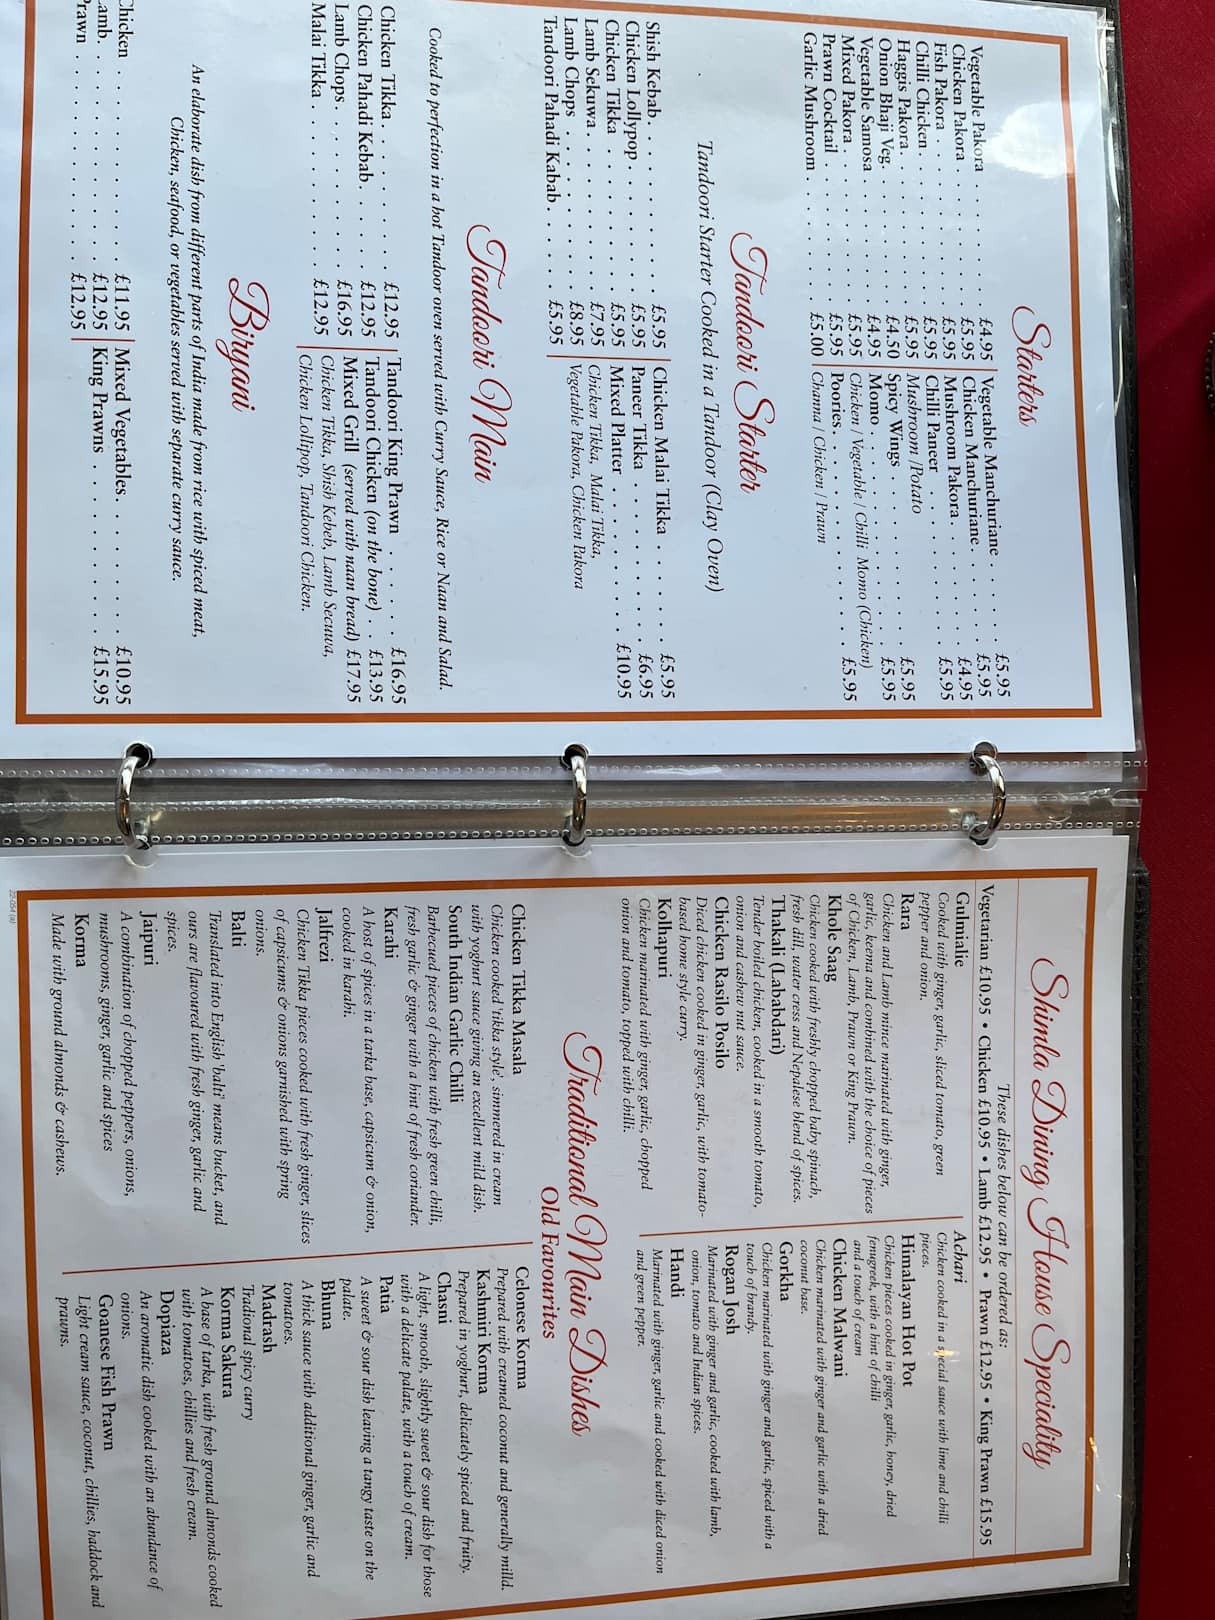 Starters
Vegetable Pakora . . . . . . . . . . £4.95
Chicken Pakora . . . . . . . . . . . £5.95
Fish Pakora . . . . . . . . . . . . £5.95
Chilli Chicken. . . . . . . . . . . . £5.95
Haggis Pakora. . . . . . . . . . . . £5.95
Onion Bhaji Veg. . . . . . . . . . . £4.50
Vegetable Samosa . . . . . . . . . . £4.95
Mixed Pakora . . . . . . . . . . . . £5.95
Prawn Cocktail . . . . . . . . . . . £5.95
Garlic Mushroom . . . . . . . . . . £5.00
Vegetable Manchuriane . . . . . . £5.95
Chicken Manchuriane. . . . . . . £5.95
Mushroom Pakora. . . . . . . . . £4.95
Chilli Paneer . . . . . . . . . . . £5.95
Mushroom /Potato
Spicy Wings . . . . . . . . . . . £5.95
Momo . . . . . . . . . . . . . . £5.95
Chicken / Vegetable / Chilli Momo (Chicken)
Poories. . . . . . . . . . . . . . £5.95
Channa / Chicken / Prawn
Tandoori Starter
Tandoori Starter Cooked in a Tandoor (Clay Oven)
Shish Kebab. . . . . . . . . . . . £5.95
Chicken Lollypop . . . . . . . . . £5.95
Chicken Tikka . . . . . . . . . . . £5.95
Lamb Sekuwa. . . . . . . . . . . . £7.95
Lamb Chops . . . . . . . . . . . . £8.95
Tandoori Pahadi Kabab. . . . . . . £5.95
Chicken Malai Tikka . . . . . . . £5.95
Paneer Tikka . . . . . . . . . . . £6.95
Mixed Platter . . . . . . . . . . . £10.95
Chicken Tikka, Malai Tikka,
Vegetable Pakora, Chicken Pakora
Tandoori Main
Cooked to perfection in a hot Tandoor oven served with Curry Sauce, Rice or Naan and Salad.
Chicken Tikka. . . . . . . . . . . £12.95
Chicken Pahadi Kebab. . . . . . . £12.95
Lamb Chops. . . . . . . . . . . . £16.95
Malai Tikka . . . . . . . . . . . . £12.95
Tandoori King Prawn . . . . . . £16.95
Tandoori Chicken (on the bone) . . £13.95
Mixed Grill (served with naan bread) £17.95
Chicken Tikka, Shish Kebeb, Lamb Secuwa,
Chicken Lollipop, Tandoori Chicken.
Biryani
An elaborate dish from different parts of India made from rice with spiced meat,
Chicken, seafood, or vegetables served with separate curry sauce.
Chicken . . . . . . . . . . . . . £11.95
Lamb. . . . . . . . . . . . . . . £12.95
Prawn . . . . . . . . . . . . . . £12.95
Mixed Vegetables. . . . . . . . . £10.95
King Prawns . . . . . . . . . . . £15.95
Shimla Dining House Speciality
These dishes below can be ordered as:
Vegetarian £10.95 • Chicken £10.95 • Lamb £12.95 • Prawn £12.95 • King Prawn £15.95
Gulmialie
Cooked with ginger, garlic, sliced tomato, green
pepper and onion.
Rara
Chicken and Lamb mince marinated with ginger,
garlic, keema and combined with the choice of pieces
of Chicken, Lamb, Prawn or King Prawn.
Khole Saag
Chicken cooked with freshly chopped baby spinach,
fresh dill, water cress and Nepalese blend of spices.
Thakali (Lababdari)
Tender boiled chicken, cooked in a smooth tomato,
onion and cashew nut sauce.
Chicken Rasilo Posilo
Diced chicken cooked in ginger, garlic, with tomato-
based home style curry.
Kolhapuri
Chicken marinated with ginger, garlic, chopped
onion and tomato, topped with chilli.
Achari
Chicken cooked in a special sauce with lime and chilli
pieces.
Himalayan Hot Pot
Chicken pieces cooked in ginger, garlic, honey, dried
fenugreek, with a hint of chilli
and a touch of cream
Chicken Malwani
Chicken marinated with ginger and garlic with a dried
coconut base.
Gorkha
Chicken marinated with ginger and garlic, spiced with a
touch of brandy.
Rogan Josh
Marinated with ginger and garlic, cooked with lamb,
onion, tomato and Indian spices.
Handi
Marinated with ginger, garlic and cooked with diced onion
and green pepper.
Traditional Main Dishes
Old Favourites
Chicken Tikka Masala
Chicken cooked 'tikka style', simmered in cream
with yoghurt sauce giving an excellent mild dish.
South Indian Garlic Chilli
Barbecued pieces of chicken with fresh green chilli,
fresh garlic & ginger with a hint of fresh coriander.
Karahi
A host of spices in a tarka base, capsicum & onion,
cooked in karahi.
Jalfrezi
Chicken Tikka pieces cooked with fresh ginger, slices
of capsicums & onions garnished with spring
onions.
Balti
Translated into English 'balti' means bucket, and
ours are flavoured with fresh ginger, garlic and
spices.
Jaipuri
A combination of chopped peppers, onions,
mushrooms, ginger, garlic and spices
Korma
Made with ground almonds & cashews.
Celonese Korma
Prepared with creamed coconut and generally milld.
Kashmiri Korma
Prepared in yoghurt, delicately spiced and fruity.
Chasni
A light, smooth, slightly sweet & sour dish for those
with a delicate palate, with a touch of cream.
Patia
A sweet & sour dish leaving a tangy taste on the
palate.
Bhuna
A thick sauce with additional ginger, garlic and
tomatoes.
Madrash
Traditional spicy curry
Korma Sakura
A base of tarka, with fresh ground almonds cooked
with tomatoes, chillies and fresh cream.
Dopiaza
An aromatic dish cooked with an abundance of
onions.
Goanese Fish Prawn
Light cream sauce, coconut, chillies, haddock and
prawns.
22-054 (a)